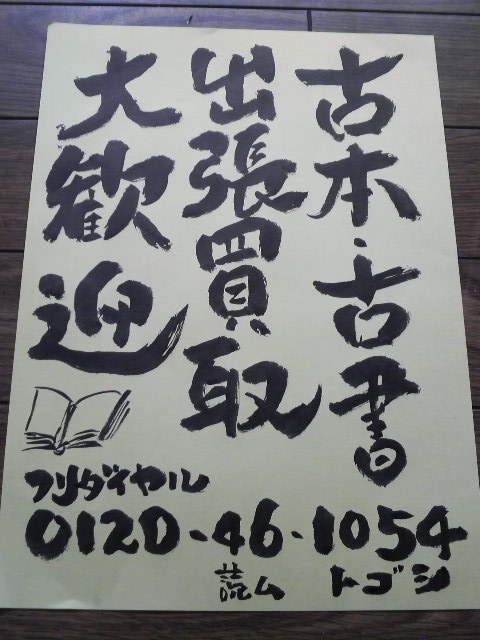 古本・古書
出張買取
大歓迎
フリーダイヤル
0120-46-1054
読ム トゴシ